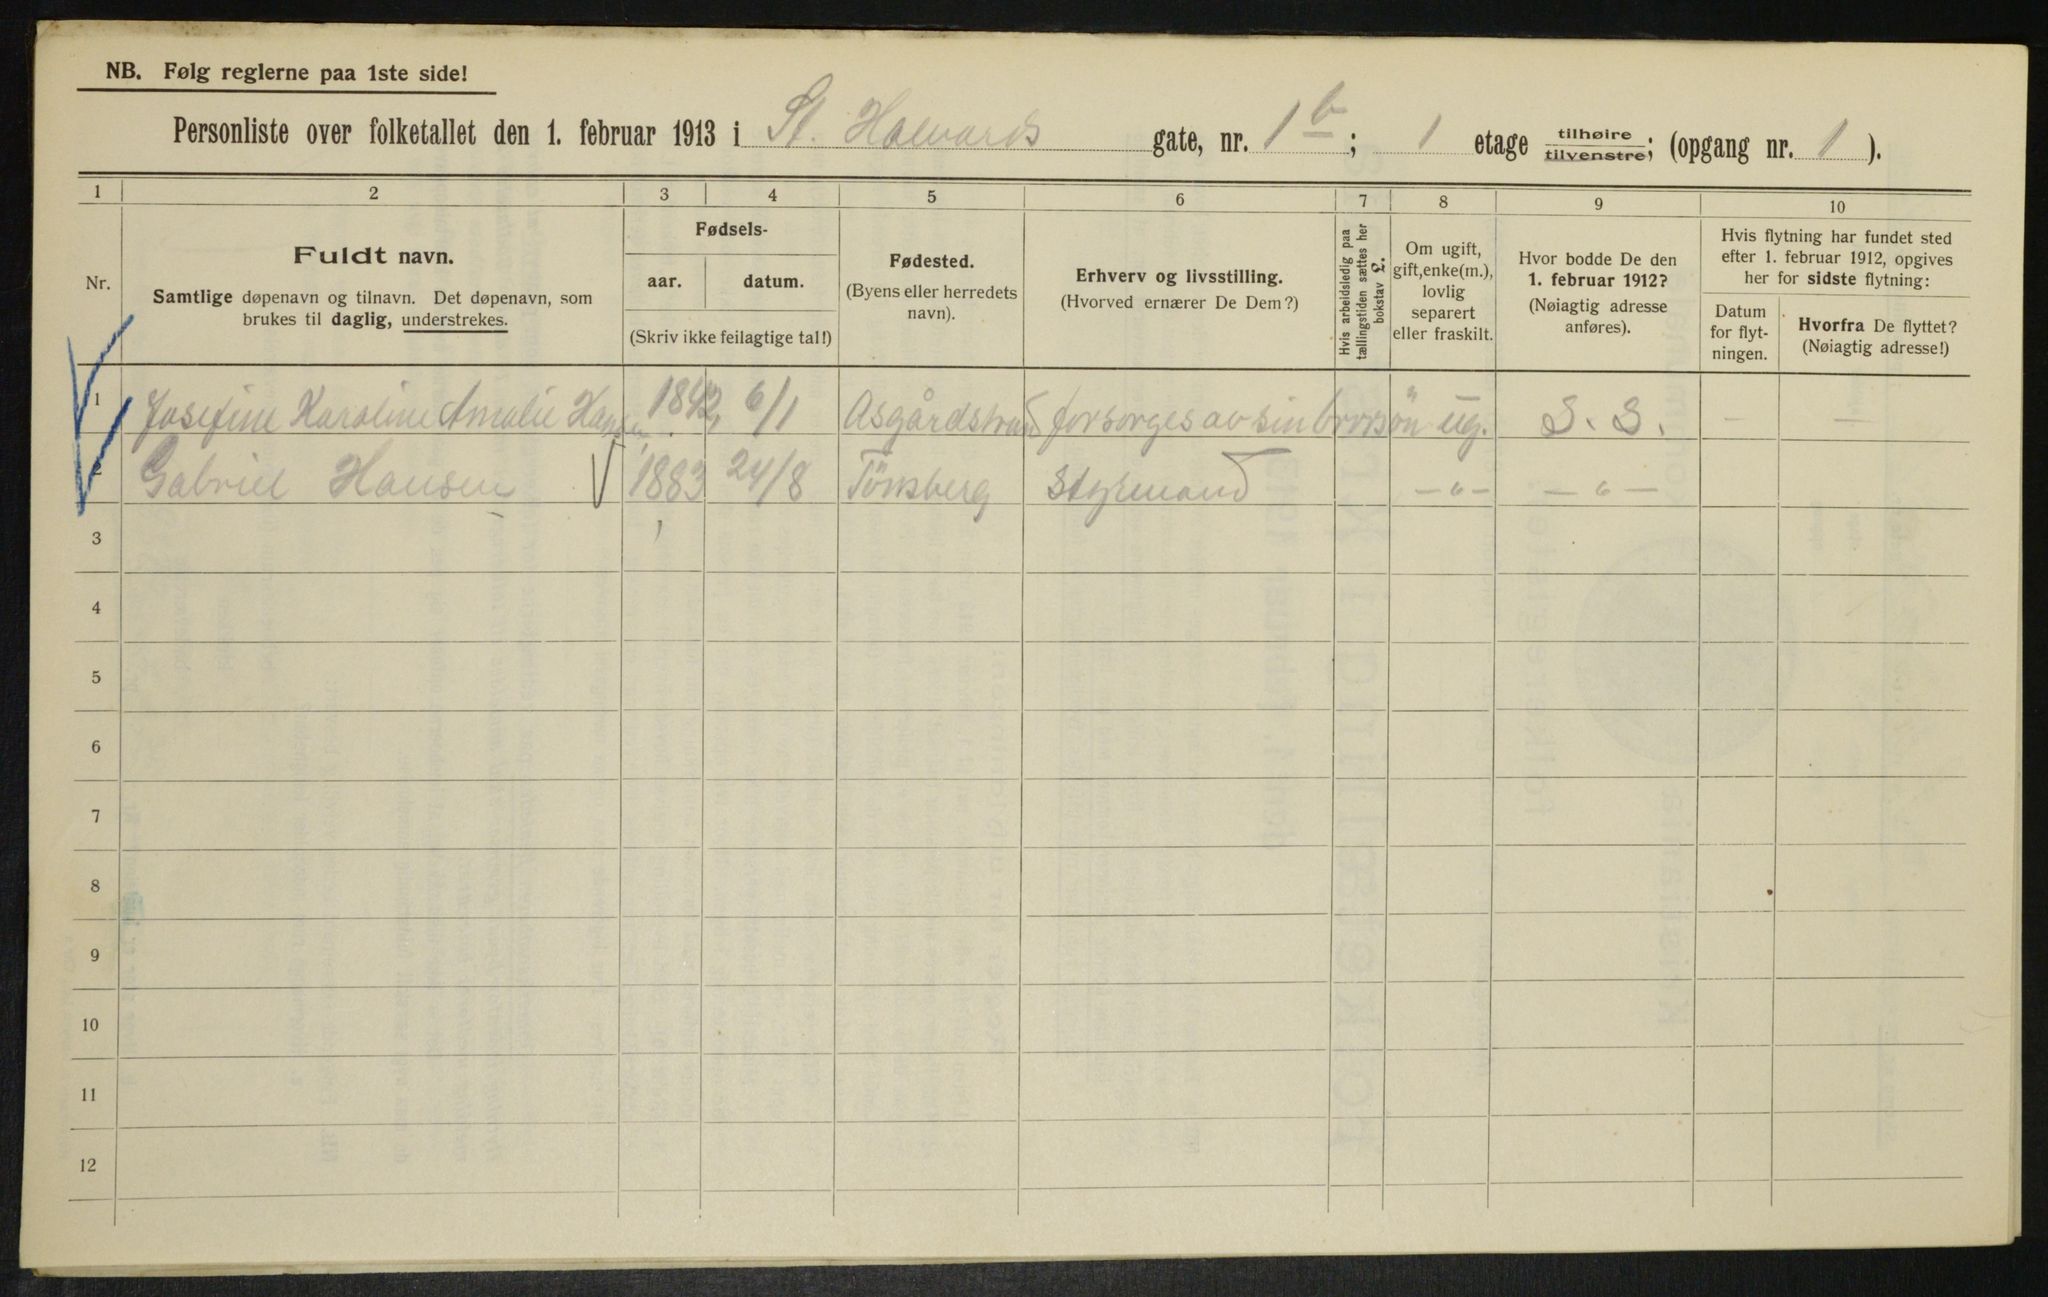 NB. Følg reglerne paa 1ste side!
Personliste over folketallet den 1. februar 1913 i St. Halvards gate, nr. 1 b; 1 etage tilhøire / tilvenstre; (opgang nr. 1).
1 2 3 4 5 6 7 8 9 10
Nr.
Fuldt navn.
Samtlige døpenavn og tilnavn. Det døpenavn, som
brukes til daglig, understrekes.
Fødsels-
aar. datum.
(Skriv ikke feilagtige tal!)
Fødested.
(Byens eller herredets
navn).
Erhverv og livsstilling.
(Hvorved ernærer De Dem?)
Hvis arbeidsledig paa
tællingstiden sættes her
bokstav L.
Om ugift,
gift, enke(m.),
lovlig
separert
eller fraskilt.
Hvor bodde De den
1. februar 1912?
(Nøiagtig adresse
anføres).
Hvis flytning har fundet sted
efter 1. februar 1912, opgives
her for sidste flytning:
Datum
for flyt-
ningen.
Hvorfra De flyttet?
(Nøiagtig adresse!)
1 Josefine Karoline Amalie Hansen 1842 6/1 Asgårdstrand forsorges av sin brorsön ug. S. S. — —
2 Gabriel Hansen 1883 24/8 Tönsberg Styrmand — " — — " —
3
4
5
6
7
8
9
10
11
12